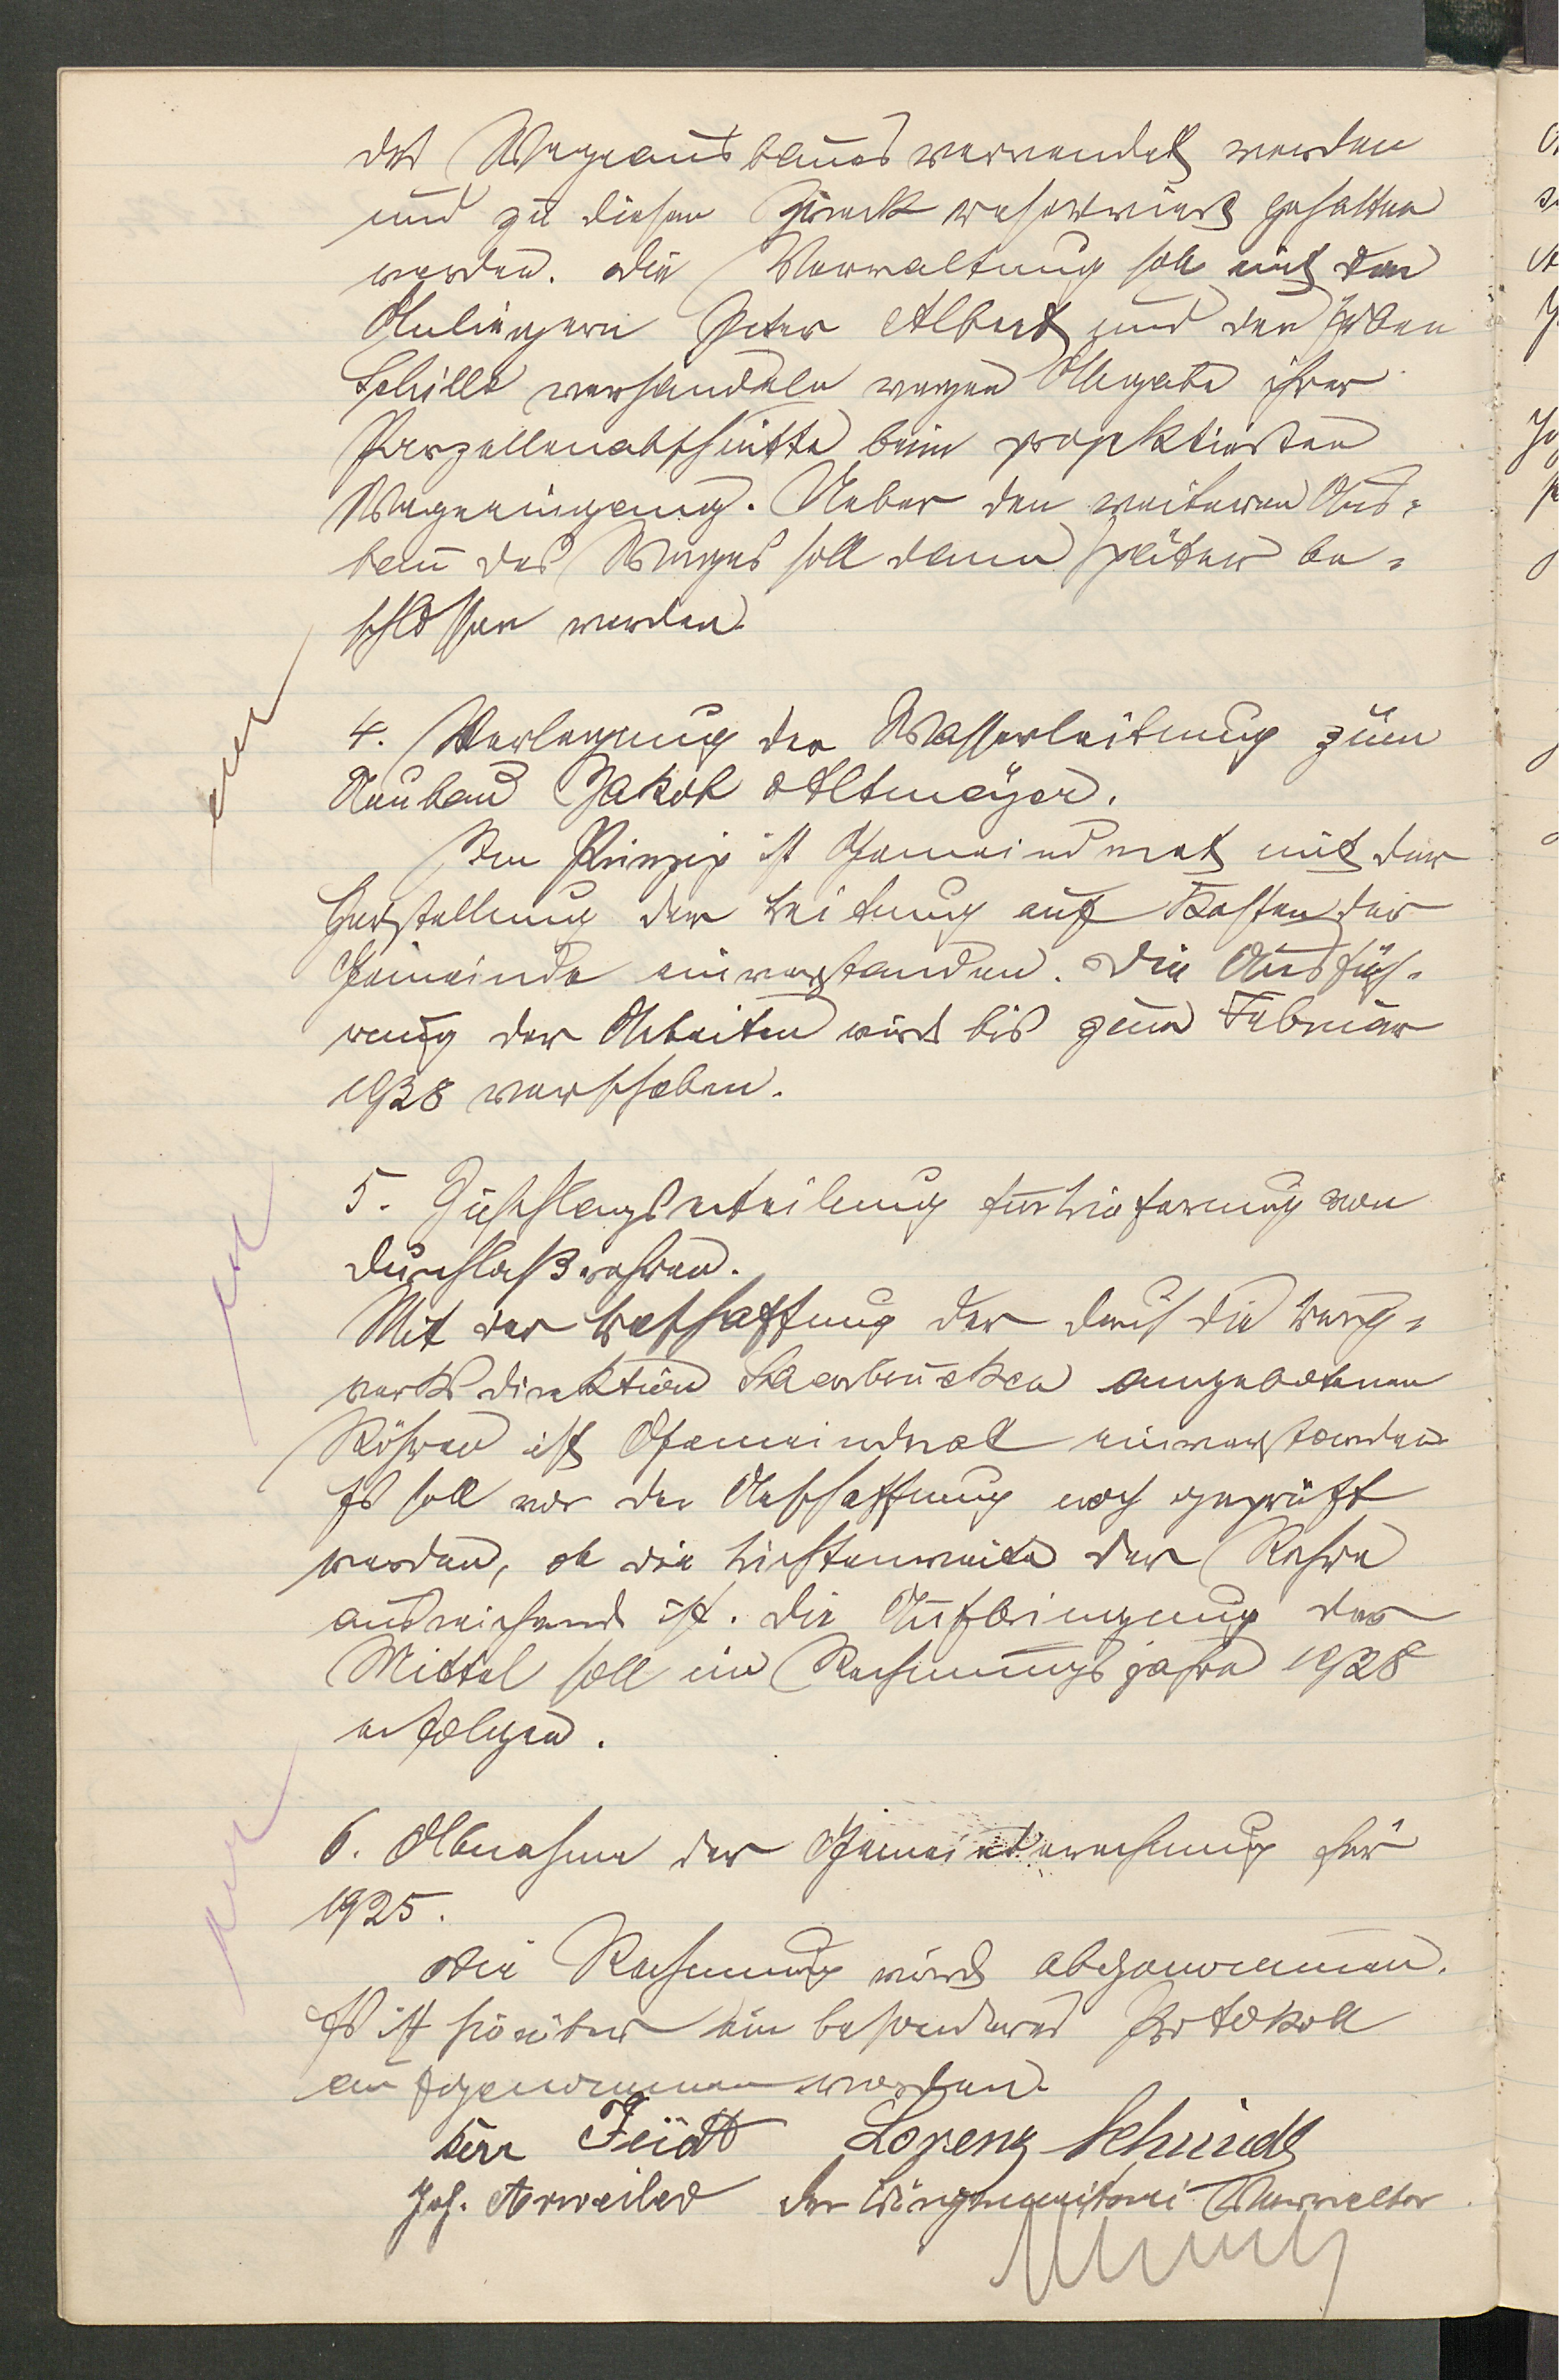 des Wegeausbaues verwendet werden
und zu diesem Zweck reserviert gehalten
werden. Die Verwaltung soll mit den
Anliegern Peter Albert und den Erben
Schille verhandeln wegen Abgabe ihrer
Parzellenabschnitte beim projektierten
Wegeeingang. Ueber den weiteren Aus-
bau des Weges soll dann später be-
schlossen werden.
4. Verlegung der Wasserleitung zum
Neubau Jakob Altmeyer.
Im Prinzip ist Gemeinderat mit der
Herstellung der Leitung auf Kosten der
Gemeinde einverstanden. Die Ausfüh-
rung der Arbeiten wird bis zum Februar
1928 verschoben.
5. Zuschlagserteilung für Lieferung von
Durchlaßrohren.
Mit der Beschaffung der durch die Berg-
werksdirektion Saarbrücken angebotenen
Röhren ist Gemeinderat einverstanden
Es soll vor der Anschaffung noch geprüft
werden, ob die Lichtenweite der Rohre
ausreichend ist. Die Aufbringung der
Mittel soll im Rechnungsjahre 1928
erfolgen.
6. Abnahme der Gemeinderechnung für
1925.
Die Rechnung wird abgenommen.
Es ist hierüber ein besonderes Protokoll
aufgenommen worden.
Feidt Lorenz Schmidt
Joh. Arweiler Der Bürgermeisterei Verwalter